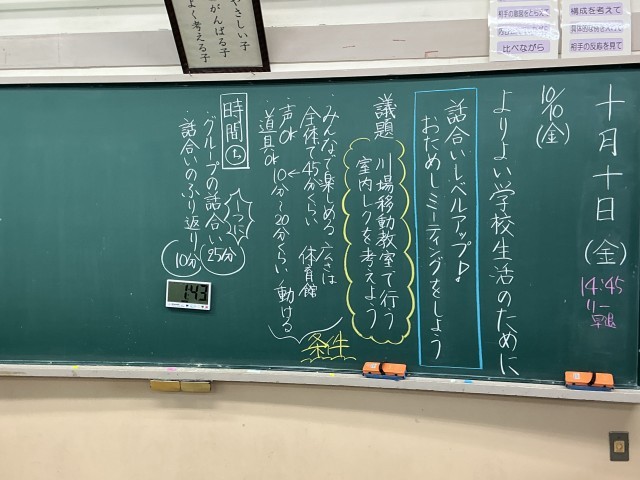 やさしい子
がんばる子
よく考える子
比べながら
構成を考えて
相手の反応を見て
十月十日（金）
14:45
早退
10/10（金）
よりよい学校生活のために
話合いレベルアップ♪
おためしミーティングをしよう
議題
川場移動教室で行う
室内レクを考えよう
・みんなで楽しめる 広さは
全体で45分くらい 体育館
・声OK 10分～20分くらい 動ける
・道具OK
条件
時間
・グループの話合い 25分
・話合いのふり返り 10分
1:43